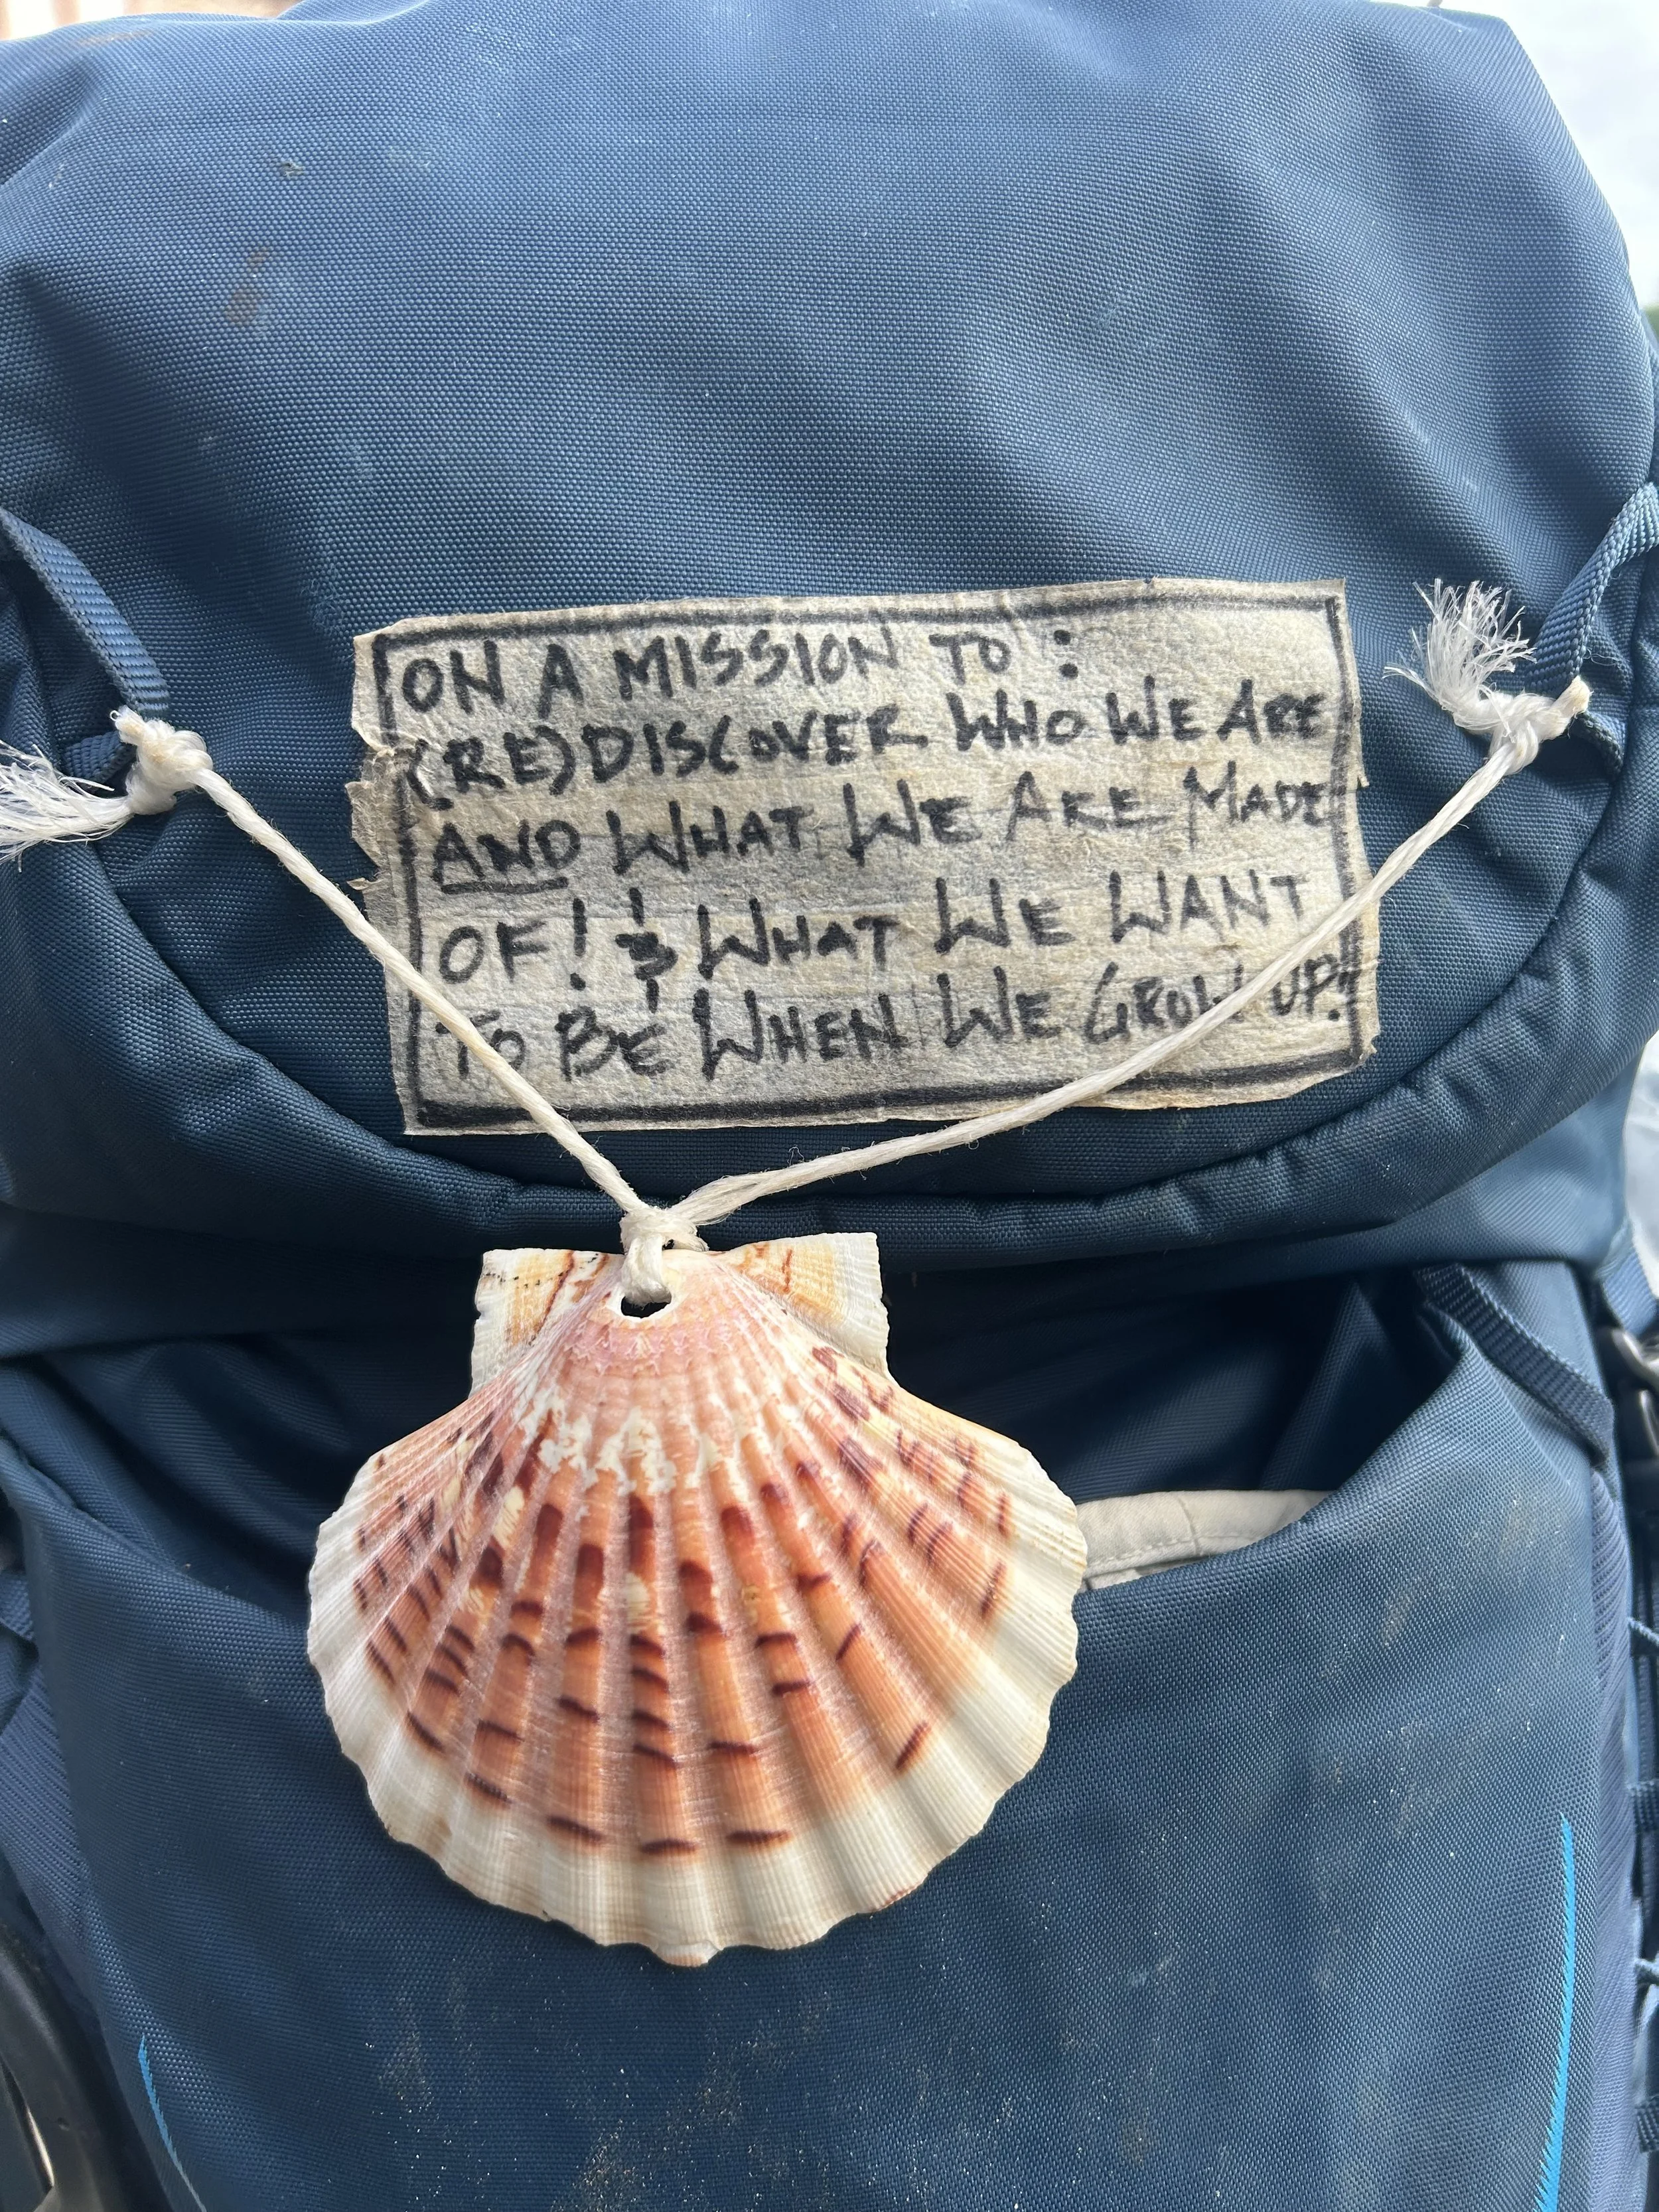 ON A MISSION TO:
(RE)DISCOVER WHO WE ARE
AND WHAT WE ARE MADE
OF! & WHAT WE WANT
TO BE WHEN WE GROW UP!